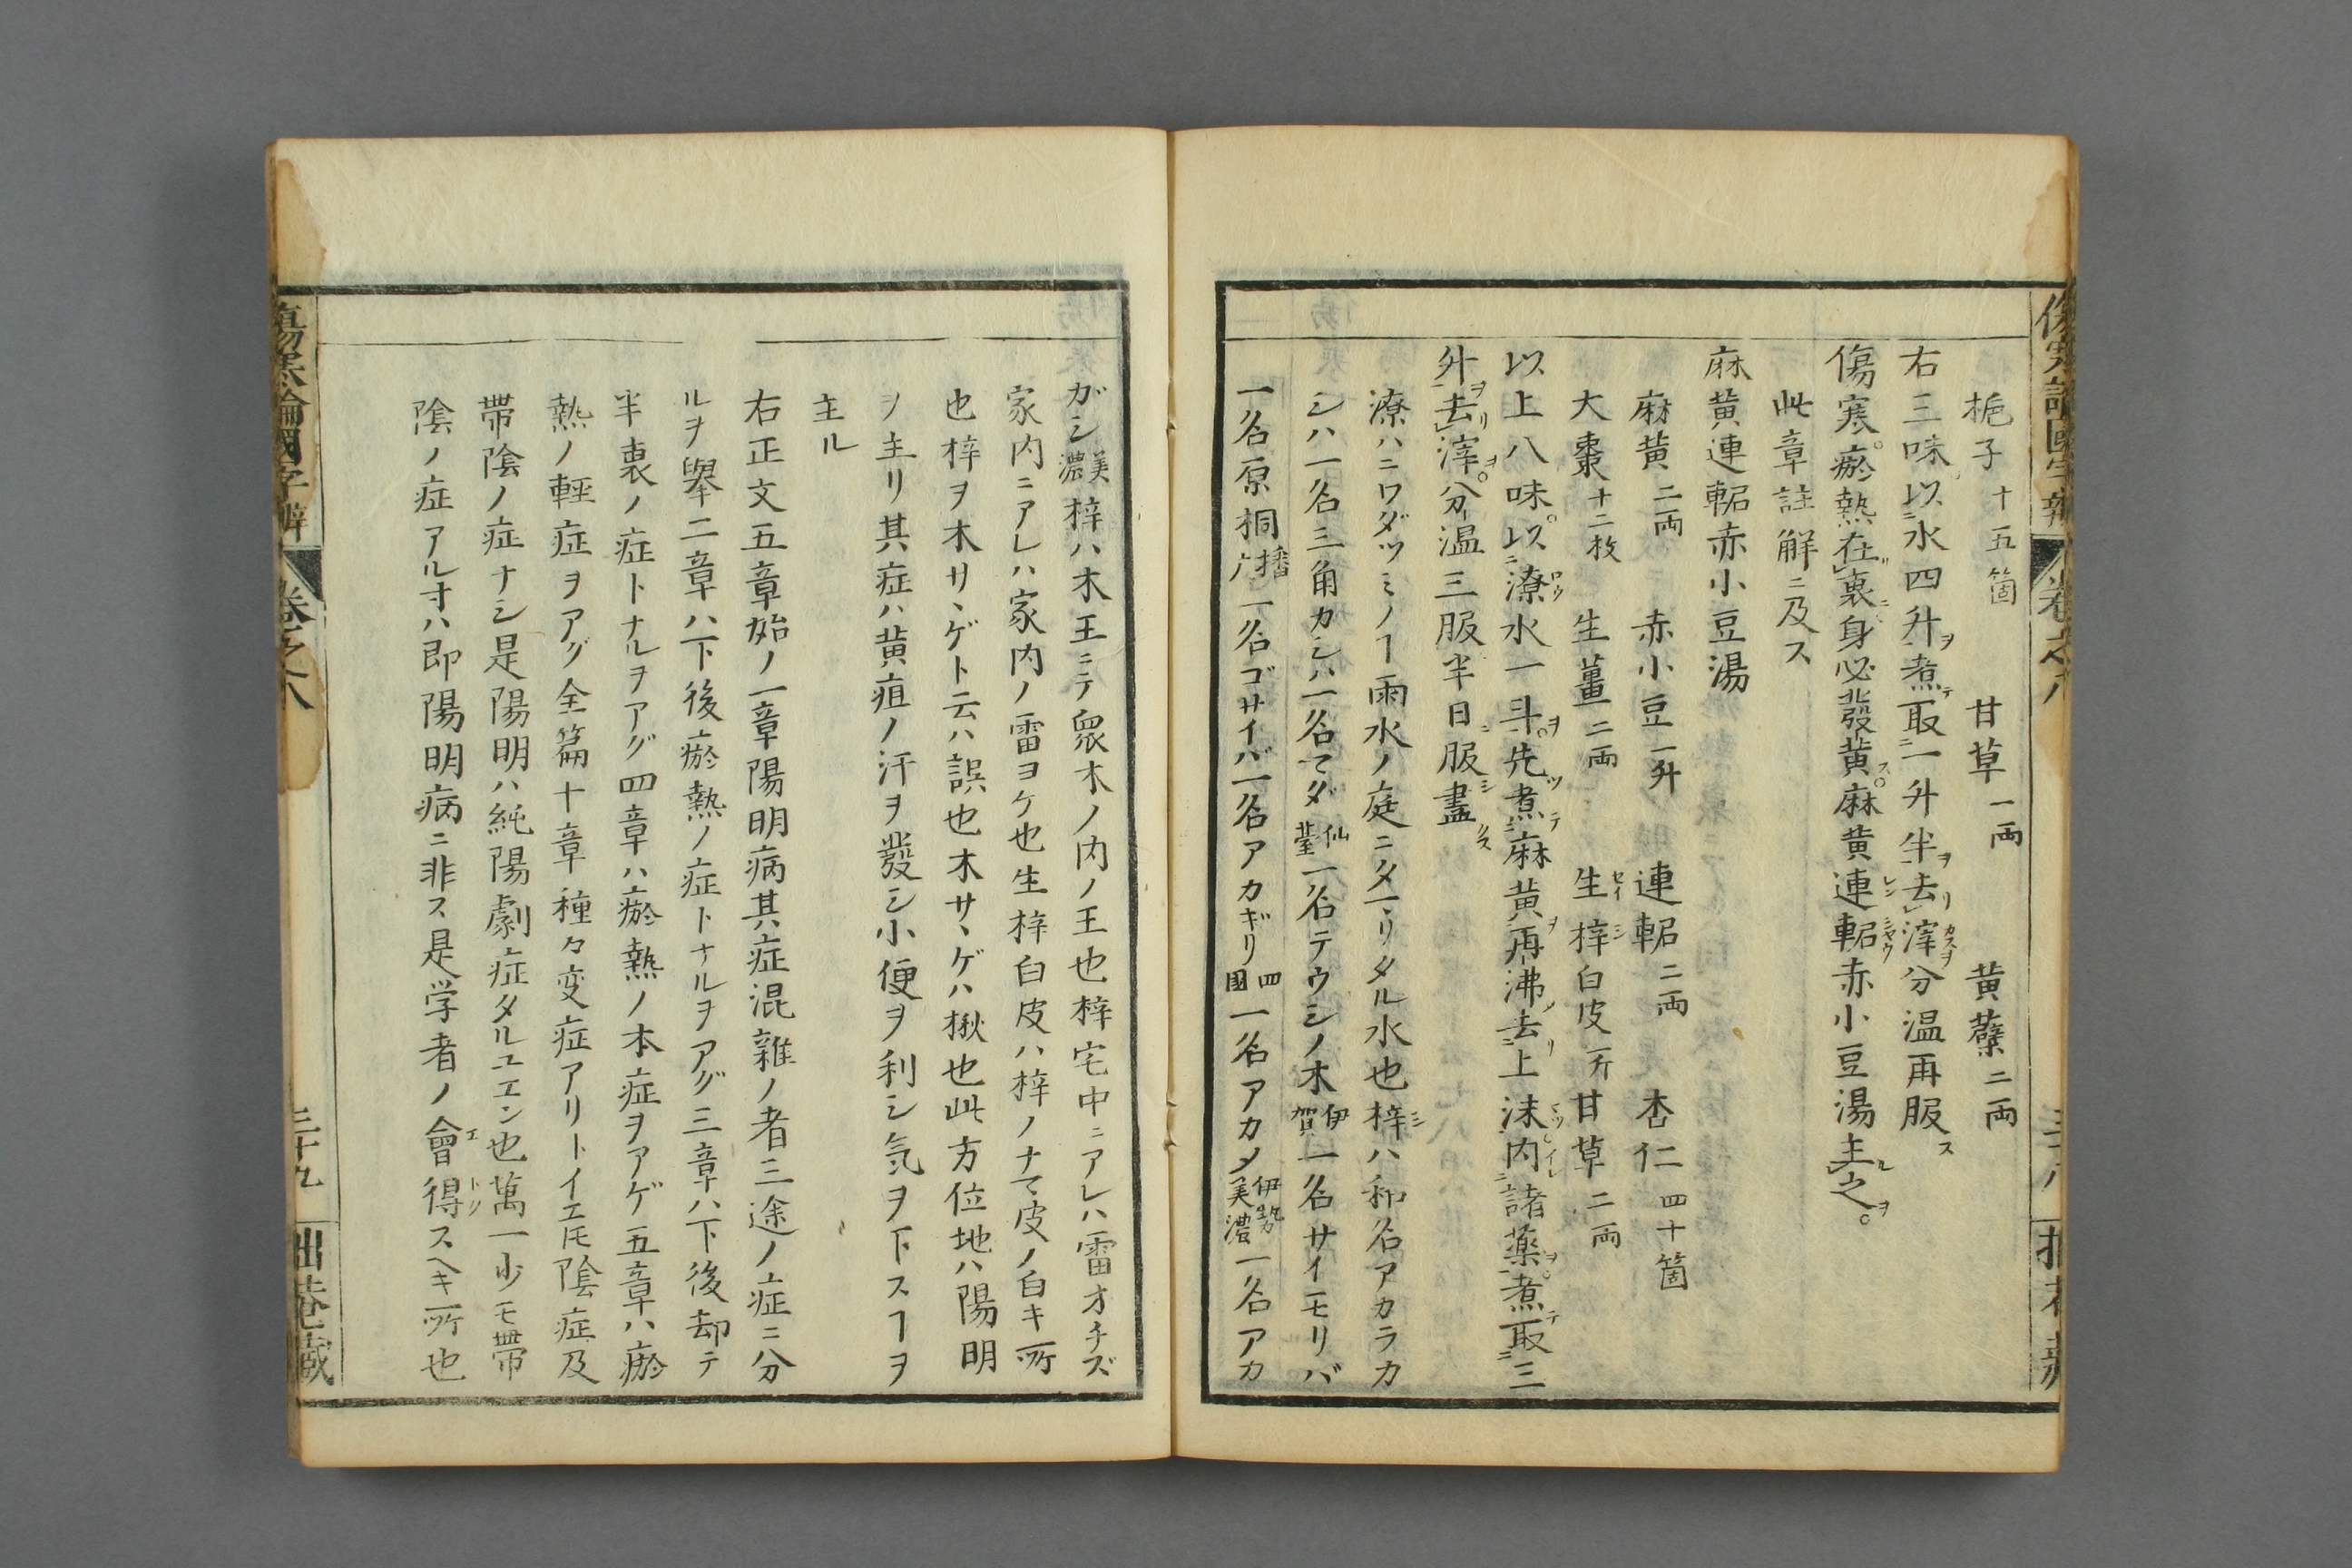 梔子 十五箇 甘草 一両 黄蘗 二両
右三味以水四升煮取一升半去滓分温再服
傷寒瘀熱在裏身必發黄麻黄連軺赤小豆湯主之
此章註解ニ及ス
麻黄連軺赤小豆湯
麻黄 二両 赤小豆 一升 連軺 二両 杏仁 四十箇
大棗 十二枚 生薑 二両 生梓白皮 一斤 甘草 二両
以上八味以潦水一斗先煮麻黄再沸去上沫内諸薬煮取三
升去滓分温三服半日服盡
潦ハニワダツミノヿ雨水ノ庭ニタマリタル水也梓ハ和名アカラカ
シハ一名三角カシハ一名マダ仙臺一名テウシノ木伊賀一名サイモリバ
一名原桐播广一名ゴサイバ一名アカギリ四國一名アカメ伊勢美濃一名アカ
ガシ美濃梓ハ木王ニテ衆木ノ内ノ王也梓宅中ニアレハ雷オチズ
家内ニアレハ家内ノ雷ヨケ也生梓白皮ハ梓ノナマ皮ノ白キ所
也梓ヲ木サヽゲト云ハ誤也木サヽゲハ楸也此方位地ハ陽明
ヲ主リ其症ハ黄疸ノ汗ヲ發シ小便ヲ利シ気ヲ下スヿヲ
主ル
右正文五章始ノ一章陽明病其症混雜ノ者三途ノ症ニ分
ルヲ擧二章ハ下後瘀熱ノ症トナルヲアグ三章ハ下後却テ
半表ノ症トナルヲアグ四章ハ瘀熱ノ本症ヲアゲ五章ハ瘀
熱ノ輕症ヲアグ全篇十章種々変症アリトイエ𪜈陰症及
帶陰ノ症ナシ是陽明ハ純陽劇症タルユエン也萬一少モ帶
陰ノ症アルオハ即陽明病ニ非ス是学者ノ會得スヘキ所也
傷寒論國字辨 卷之八 三十九 拙菴蔵